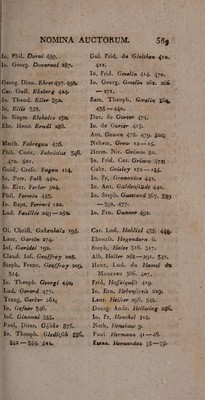 NOMINA AUCTORUM. 569
Io. Phil. Duroi 499.
Io. Georg. Duvernoi 287.
Georg. Dion. Ehret 497. 498.
Car. Gust. Ekeberg 424.
Io. Theod. Eller 392.
Io. Ellis 352.
Io. Sigsm. Elsholtz 150.
Ehr. Henr. Erndl 286.
Matth. Fabregou 476.
Phil. Conr. Fabricius 346.
470. 501.
Guid. Cresc. Fagon 114.
Io. Petr. Falk 440.
Io. Eier. Ferber 504.
Phil. Fermin 455.
Io. Bapt. Ferrari 122.
Lud. Feuillée 249—250.
Ol. Christ. Gahenholz 196.
Laur. Garcin 274.
Ios. Garidel 291.
Claud. Ios. Geoffroy 208.
Steph. Franc. Geoffroy 209.
314.
Io. Theoph. Georgi 440.
Lud. Gerard 477.
Traug. Gerber 261.
Io. Gesner 346.
Ios. Ginanni 355.
Paul. Diter. Giseke 575.
Io. Theoph. Gleditsch 536.
542—544. 502.
Gul. Frid. de Gleichen 410.
411.
Io. Frid. Gmelin 414. 470.
Io. Georg. Gmelin 262. 266
—272.
Sam. Theoph. Gmelin 264.
435—440.
Dav. de Gorter 474.
Io. de Gorter 413.
Ant. Gouan 478. 479. 504.
Nehem. Grew 12—15.
Herm. Nic. Grimm 82.
Io. Frid. Car. Grimm 472.
Gabr. Grisley 152—155.
Io. Fr. Gronovius 441.
Io. Ant. Güldenstädt 440.
Io. Steph. Guettard 367. 389
—392. 477.
Io. Ern. Gunner 491.
Car. Lud. Hablizl 438. 440.
Ehrenfr. Hagendorn 6.
Steph. Hales 316. 317.
Alb. Haller 262—291. 347.
Henr. Lud. du Hamel du
Monceau 366. 407.
Frid. Hasselquist 419.
Io. Ern. Hebenstreit 229.
Laur. Heister 296. 349.
Georg. Andr. Hellwing 286.
Io. Fr. Henckel 315.
Nath. Henshaw 9.
Paul Hermann 41—48.
Franc. Hernandez 75—76.